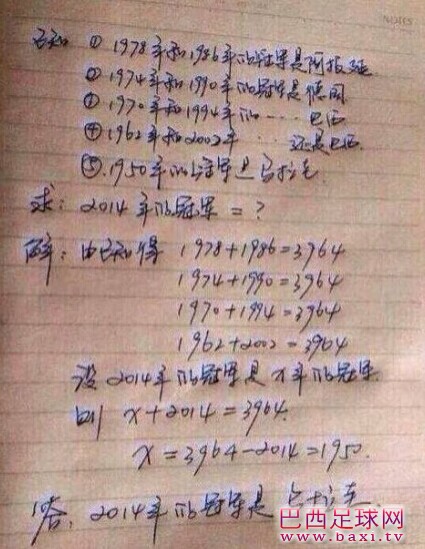 NOTES
已知 ① 1978年和1986年的冠军是阿根廷
② 1974年和1990年的冠军是德国
③ 1970年和1994年的…… 巴西
④ 1962年和2002年…… 还是巴西
⑤ 1950年的冠军是乌拉圭
求：2014年的冠军=？
解：由已知得 1978+1986=3964
1974+1990=3964
1970+1994=3964
1962+2002=3964
设2014年的冠军是x年的冠军.
则 x+2014=3964.
x=3964-2014=1950.
答：2014年的冠军是乌拉圭.
巴西足球网
www.baxi.tv